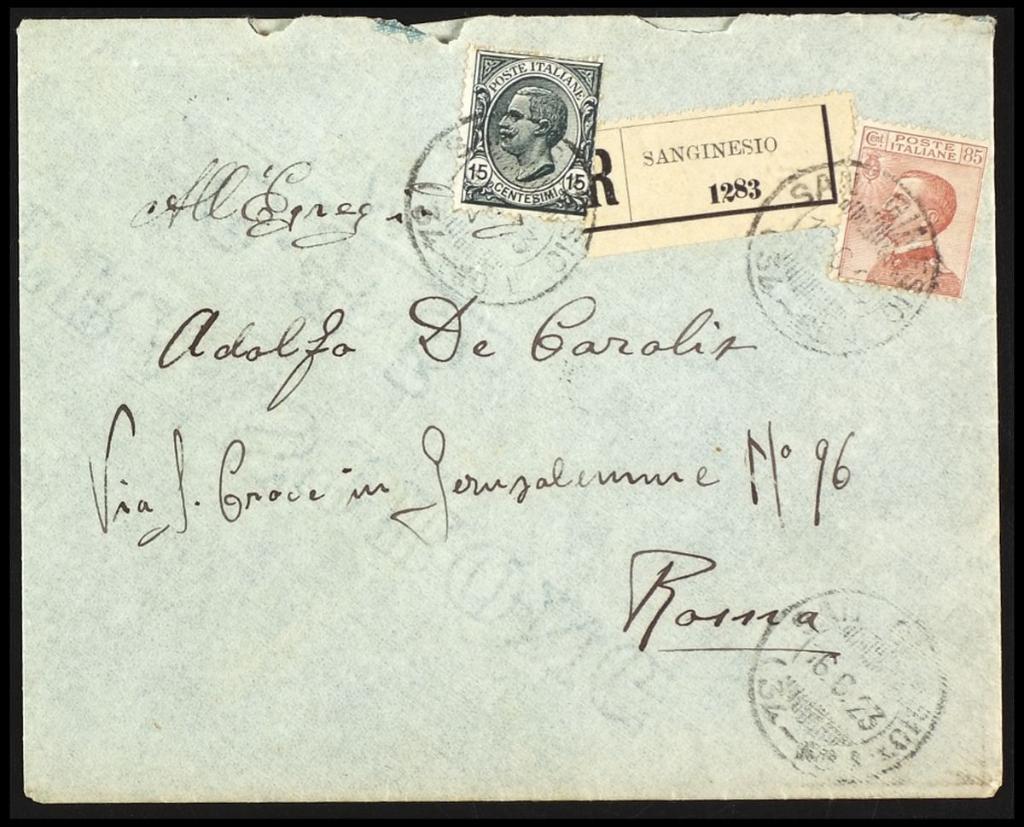 POSTE ITALIANE
15 15
CENTESIMI
R SANGINESIO
1283
Cent. POSTE ITALIANE 85
All'Egreg
Adolfo De Carolis
Via S. Croce in Gerusalemme Nº 96
Roma
(34)